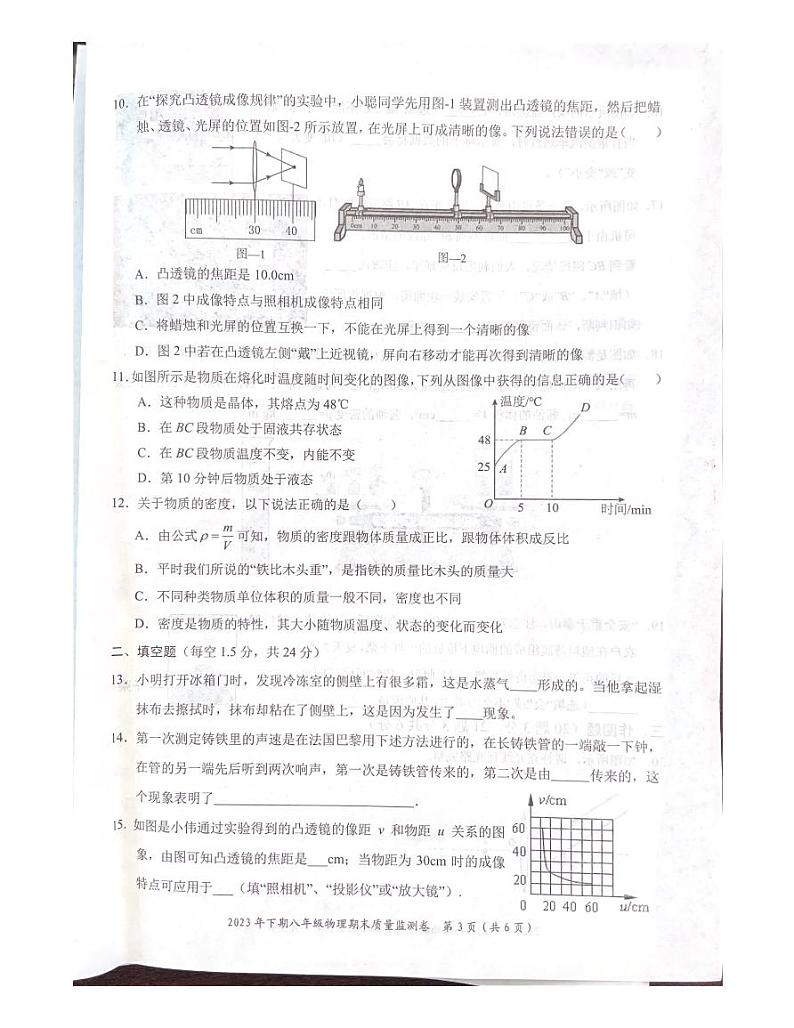 10. 在“探究凸透镜成像规律”的实验中，小聪同学先用图-1装置测出凸透镜的焦距，然后把蜡
烛、透镜、光屏的位置如图-2所示放置，在光屏上可成清晰的像。下列说法错误的是（　　）
cm 30 40
0cm 10 20 30 40 50 60 70 80 90 100
图—1
图—2
A．凸透镜的焦距是 10.0cm
B．图 2 中成像特点与照相机成像特点相同
C．将蜡烛和光屏的位置互换一下，不能在光屏上得到一个清晰的像
D．图 2 中若在凸透镜左侧“戴”上近视镜，屏向右移动才能再次得到清晰的像
11. 如图所示是物质在熔化时温度随时间变化的图像，下列从图像中获得的信息正确的是（　　）
A．这种物质是晶体，其熔点为 48℃
B．在 BC 段物质处于固液共存状态
C．在 BC 段物质温度不变，内能不变
D．第 10 分钟后物质处于液态
温度/℃
D
B C
48
25 A
O 5 10 时间/min
12．关于物质的密度，以下说法正确的是（　　）
A．由公式 ρ=m/V 可知，物质的密度跟物体质量成正比，跟物体体积成反比
B．平时我们所说的“铁比木头重”，是指铁的质量比木头的质量大
C．不同种类物质单位体积的质量一般不同，密度也不同
D．密度是物质的特性，其大小随物质温度、状态的变化而变化
二、填空题（每空 1.5 分，共 24 分）
13．小明打开冰箱门时，发现冷冻室的侧壁上有很多霜，这是水蒸气____形成的。当他拿起湿
抹布去擦拭时，抹布却粘在了侧壁上，这是因为发生了____现象。
14．第一次测定铸铁里的声速是在法国巴黎用下述方法进行的，在长铸铁管的一端敲一下钟，
在管的另一端先后听到两次响声，第一次是铸铁管传来的，第二次是由______传来的，这
个现象表明了____________________________．
15．如图是小伟通过实验得到的凸透镜的像距 v 和物距 u 关系的图
象，由图可知凸透镜的焦距是___cm；当物距为 30cm 时的成像
特点可应用于___（填“照相机”、“投影仪”或“放大镜”）．
v/cm
60
40
20
0 20 40 60 u/cm
2023 年下期八年级物理期末质量监测卷 第 3 页（共 6 页）